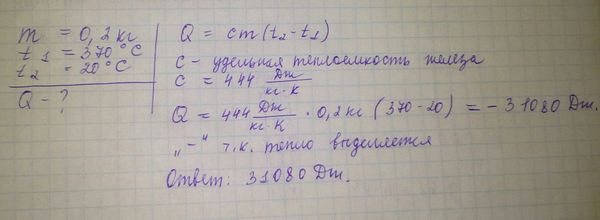 m = 0,2 кг
t₁ = 370°C
t₂ = 20°C
Q - ?
Q = cm(t₂ - t₁)
c - удельная теплоемкость железа
c = 444 Дж/кг·К
Q = 444 Дж/кг·К · 0,2 кг (370-20) = -31080 Дж.
„-“ т.к. тепло выделяется
Ответ: 31080 Дж.